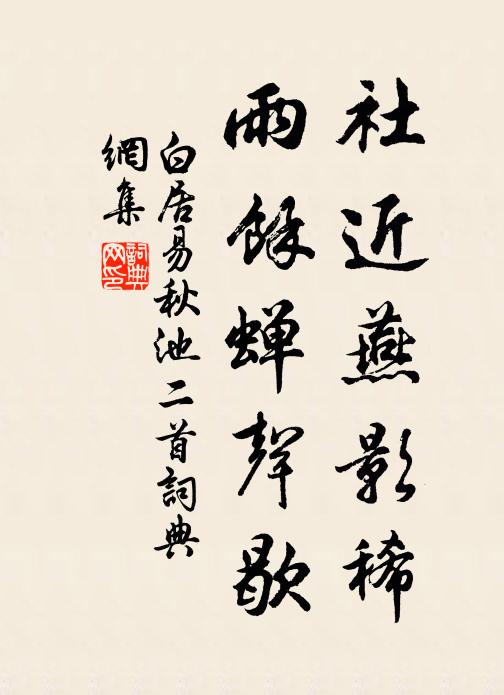 社近燕影稀
雨餘蟬聲歇
白居易秋池二首詞典
網集
詞典網印